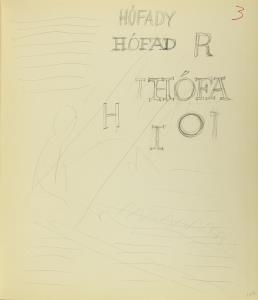 HÓFADY
HÓFAD R
3
THÓFA
H
I O T